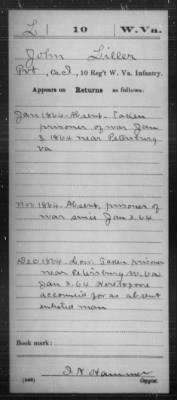 L | 10 | W. Va.
John Liller
Pvt, Co. I, 10 Reg't W. Va. Infantry.
Appears on Returns as follows:
Jan 1864. Absent. Taken
prisoner of war Jan
3 1864 near Petersburg
Va
Nov 1864. Absent, prisoner of
war since Jan 3. 64
Dec 1864. Taken prisoner
near Petersburg W. Va
Jan 3, 64 heretofore
accounted for as absent
enlisted man
Book mark:
(546)
Copyist.